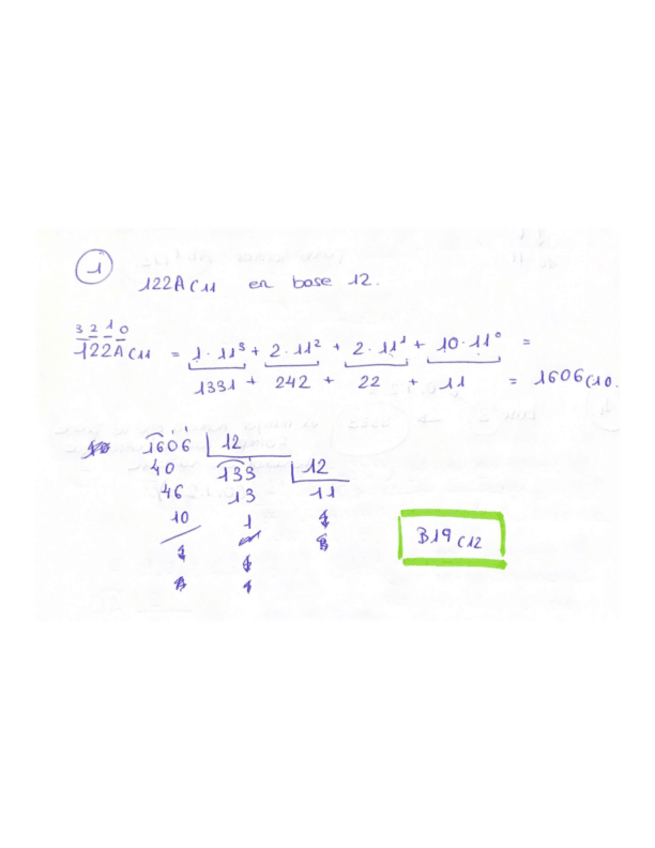 1
122A C11 en base 12.
3 2 1 0
122A C11 = 1·11³ + 2·11² + 2·11¹ + 10·11⁰ =
1331 + 242 + 22 + 11 = 1606 C10.
1606 12
40 133 12
46 13 11
10 1
B19 C12